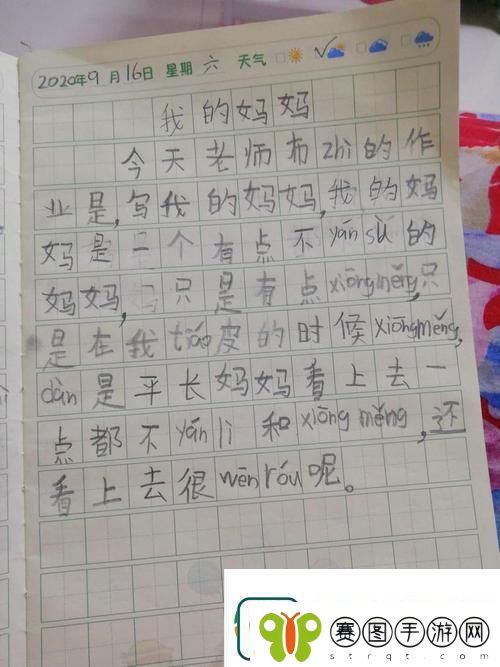 2020年9月16日 星期六 天气
我的妈妈
今天老师布zhi的作
业是,写我的妈妈,我的妈
妈是一个有点不yán sù的
妈妈,只是有点xiōngměng,只
是在我tiáo皮的时候xiōngměng,
dàn是平长妈妈看上去一
点都不yán li和xiōng měng,还
看上去很wēn róu呢。
赛图手游网
strqt.com